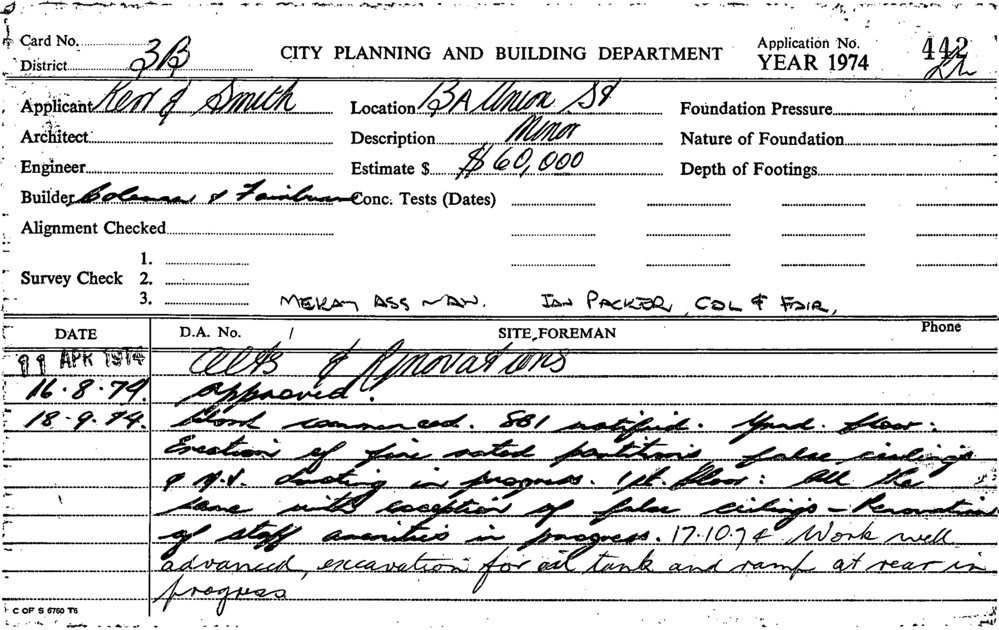 Card No.
District 3B
CITY PLANNING AND BUILDING DEPARTMENT
Application No. 442
YEAR 1974
Applicant Kerr & Smith
Location BA Union St
Foundation Pressure
Architect
Description Minor
Nature of Foundation
Engineer
Estimate $ $60,000
Depth of Footings
Builder Coleman & Fairburn
Conc. Tests (Dates)
Alignment Checked
Survey Check
1.
2.
3.
ASS IAN PACKER, COL & FAIR,
DATE D.A. No. / SITE FOREMAN Phone
11 APR 1974 & Renovations
16.8.74. Approved.
18.9.74. Work commenced. SB1 notified. Grnd. floor:
Erection of fire rated partitions false ceilings
& ducting in progress. 1st. floor: All the
same with exception of false ceilings - Renovation
of staff amenities in progress. 17.10.74 Work well
advanced, excavation for oil tank and ramp at rear in
progress
C OF S 6760 T6